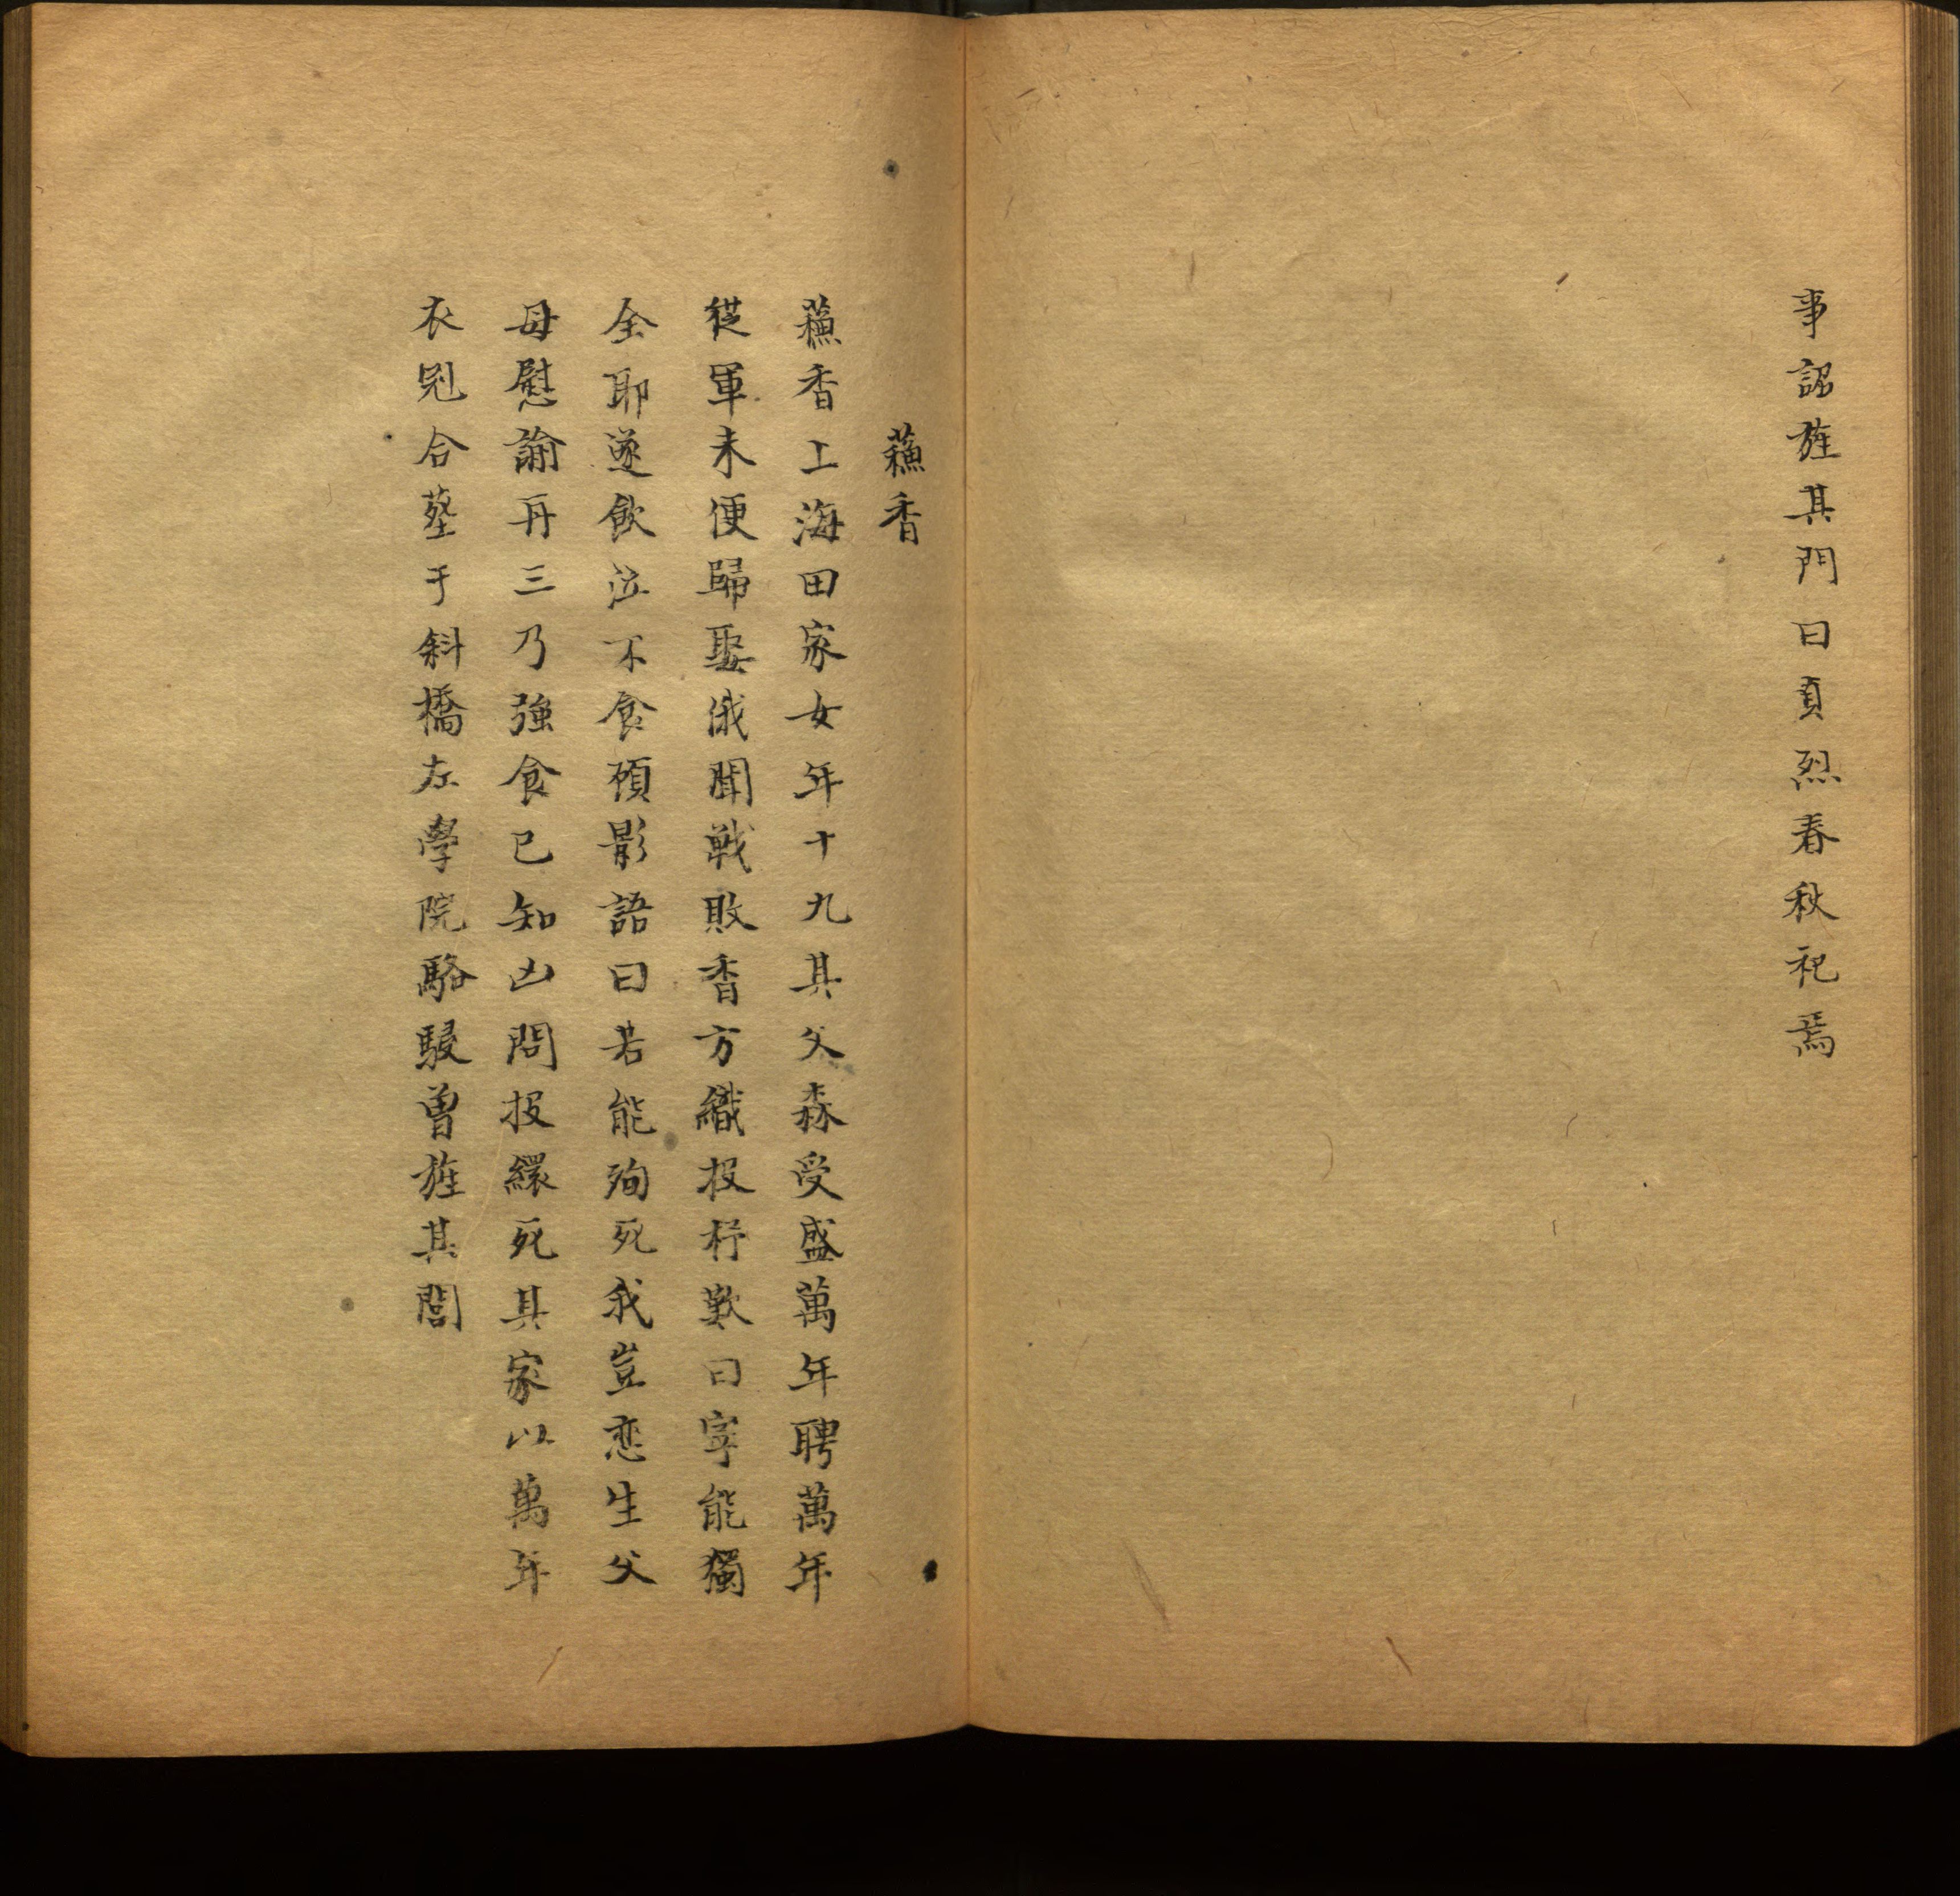 事詔旌其門曰貞烈春秋祀焉
蘓香
蘓香上海田家女年十九其父森受盛萬年聘萬年
從軍未便歸娶俄聞戰敗香方織投杼歎曰寧能獨
全耶遂飲泣不食頋影語曰若能殉死我豈恋生父
母慰諭再三乃強食已知凶問投繯死其家以萬年
衣冠合塟于斜橋左學院駱駸曾旌其閭